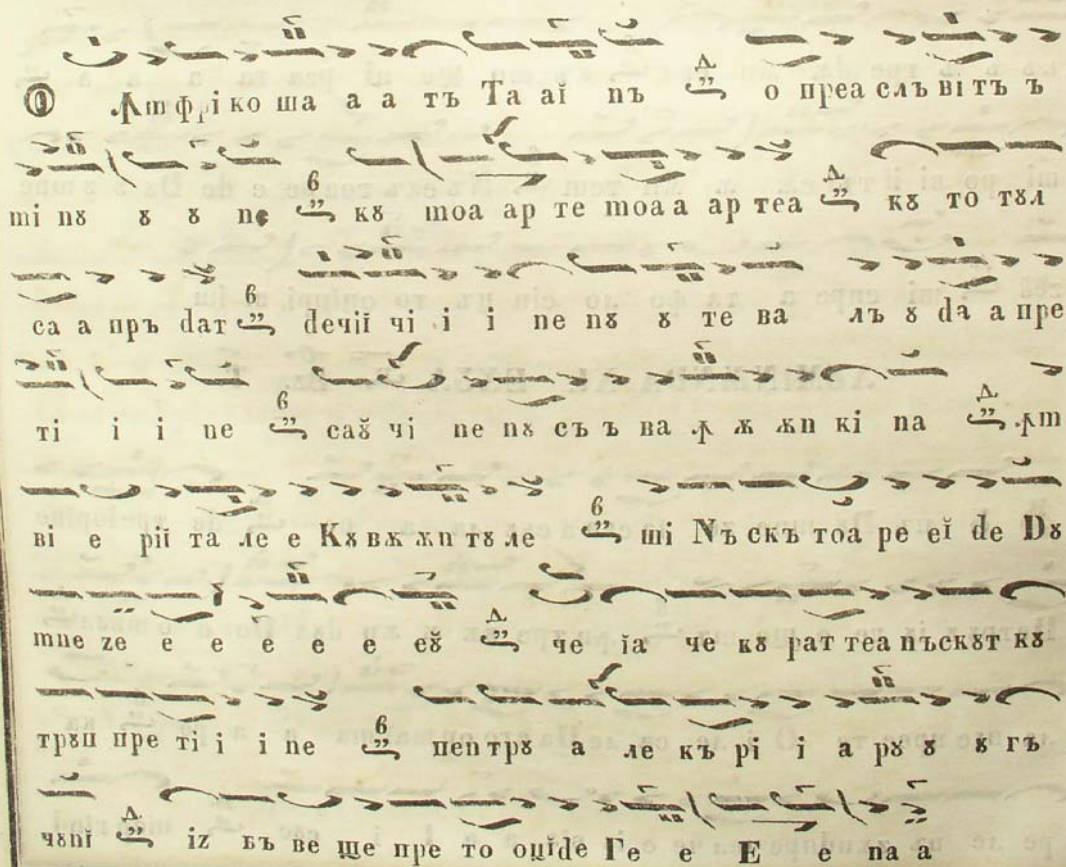 Ꙟm фрі ко ша а а тъ Та аĭ nъ о преа слъ віть ъ
mi nꙋ ꙋ ꙋ ne кꙋ moa ар те moa а ар теа кꙋ то тꙋл
са а пръ dат deчiĭ чi i i ne nꙋ ꙋ те ва лъ ꙋ da а пре
тi i i ne саꙋ̆ чi ne nꙋ съ ъ ва ꙟ ѫ ѫn кi na ꙟm
вi е piĭ та ле е Кꙋ вѫ ѫn тꙋ ле ші Nъ скъ тоа ре еĭ de Dꙋ
mne ze е е е е е еꙋ̆ че ĭа че кꙋ рат теа nъскꙋт кꙋ
трꙋп пре тi i i ne пеn трꙋ а ле къ рі і а рꙋ ꙋ ꙋ гъ
чꙋnĭ iz бъ ве ще пре то оцide Ге е Е е na а